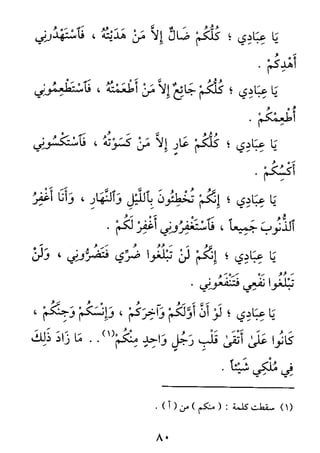 يَا عِبَادِي ؛ كُلُّكُمْ ضَالٌّ إِلاَّ مَنْ هَدَيْتُهُ ، فَٱسْتَهْدُونِي
أَهْدِكُمْ .
يَا عِبَادِي ؛ كُلُّكُمْ جَائِعٌ إِلاَّ مَنْ أَطْعَمْتُهُ ، فَٱسْتَطْعِمُونِي
أُطْعِمْكُمْ .
يَا عِبَادِي ؛ كُلُّكُمْ عَارٍ إِلاَّ مَنْ كَسَوْتُهُ ، فَٱسْتَكْسُونِي
أَكْسُكُمْ .
يَا عِبَادِي ؛ إِنَّكُمْ تُخْطِئُونَ بِٱللَّيْلِ وَٱلنَّهَارِ ، وَأَنَا أَغْفِرُ
ٱلذُّنُوبَ جَمِيعاً ، فَٱسْتَغْفِرُونِي أَغْفِرْ لَكُمْ .
يَا عِبَادِي ؛ إِنَّكُمْ لَنْ تَبْلُغُوا ضُرِّي فَتَضُرُّونِي ، وَلَنْ
تَبْلُغُوا نَفْعِي فَتَنْفَعُونِي .
يَا عِبَادِي ؛ لَوْ أَنَّ أَوَّلَكُمْ وَآخِرَكُمْ ، وَإِنْسَكُمْ وَجِنَّكُمْ ،
كَانُوا عَلَىٰ أَتْقَىٰ قَلْبِ رَجُلٍ وَاحِدٍ مِنْكُمْ(١) . . مَا زَادَ ذَلِكَ
فِي مُلْكِي شَيْئاً .
(١) سقطت كلمة : ( منكم ) من ( أ ) .
٨٠